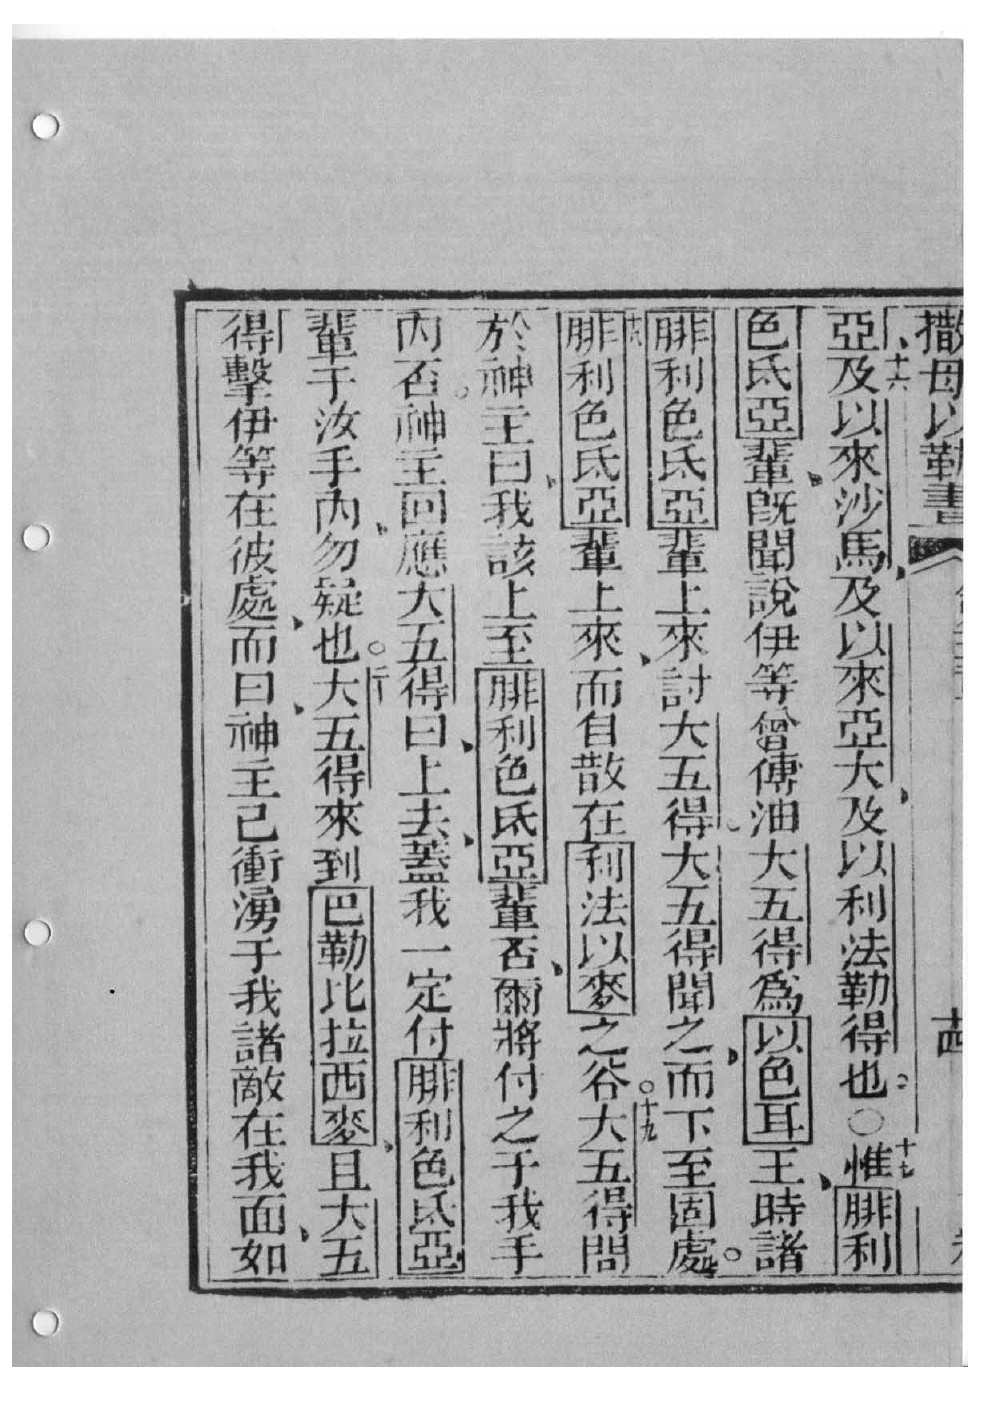 撒母以勒書
十六
亞及以來沙馬及以來亞大及以利法勒得也○十七惟腓利
色氐亞輩旣聞說伊等曾傅油大五得爲以色耳王時諸
腓利色氐亞輩上來討大五得大五得聞之而下至固處
十八腓利色氐亞輩上來而自散在利法以麥之谷十九大五得問
於神主曰我該上至腓利色氐亞輩否爾將付之于我手
內否神主回應大五得曰上去蓋我一定付腓利色氐亞
輩于汝手內勿疑也二十大五得來到巴勒比拉西麥且大五
得擊伊等在彼處而曰神主己衝湧于我諸敵在我面如